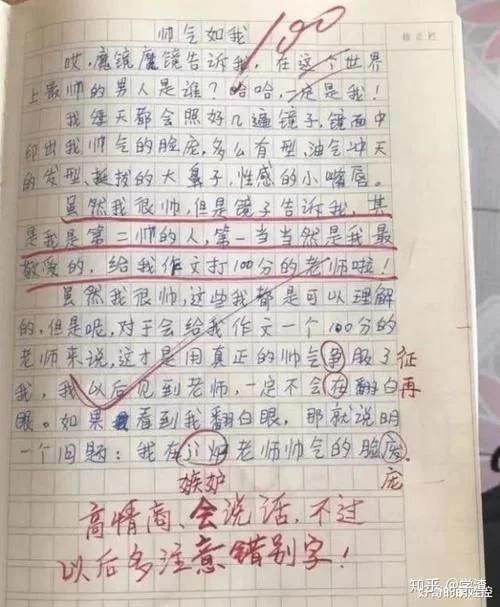 帅气如我
100
修正栏
哎,魔镜魔镜告诉我,在这个世界
上最帅的男人是谁?哈哈,一定是我!
我每天都会照好几遍镜子,镜面中
印出我帅气的脸庞,多么有型,油气冲天
的发型、挺拔的大鼻子,性感的小嘴唇。
虽然我很帅,但是镜子告诉我,其
是我是第二帅的人,第一当当然是我最
敬爱的,给我作文打100分的老师啦!
虽然我很帅,这些我都是可以理解
的,但是呢,对于会给我作文一个100分的
老师来说,这才是用真正的帅气到服了 征
我,我以后见到老师,一定不会在翻白 再
眼。如果看到我翻白眼,那就说明
一个问题:我在 老师帅气的脸
嫉妒 庞
高情商、会说话,不过
以后多注意错别字!
知乎 @学渣
好奇的萌娃控